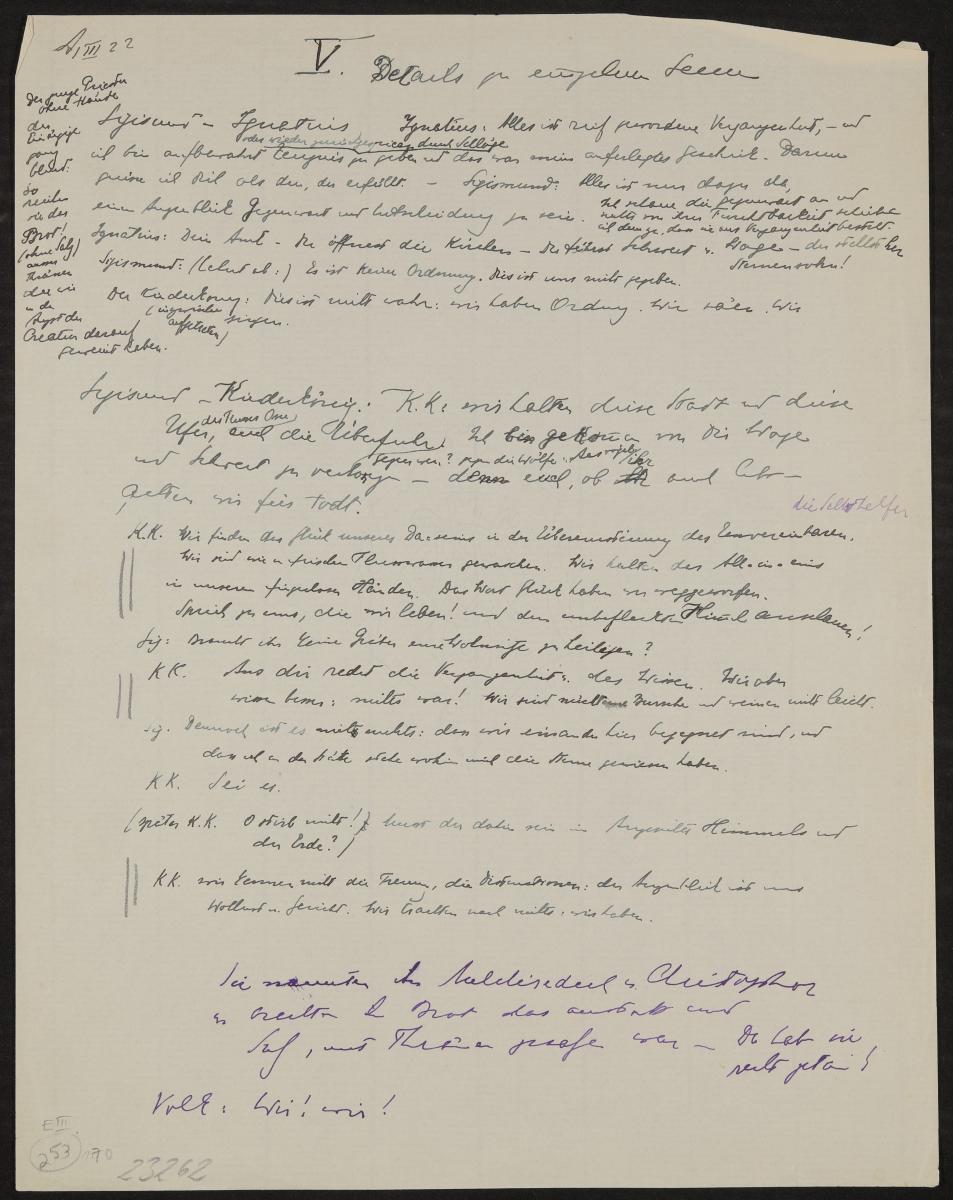 A III 22
V. Details zu einzelnen Scenen
Der junge Priester
ohne Hände
der
Einäugige
ganz
blind:
so
reichen
sie das
Brot!
(ohne Salz)
ausser
Thränen
die wir
in der
Angst der
Creatur darauf
geweint haben.
Sigismund – Ignatius Ignatius: Alles ist reif gewordene Vergangenheit, – und
ich bin aufbewahrt Zeugnis zu geben und das war mein auferlegtes Geschick. Darum
grüsse ich Dich als den, der erfüllt. – Sigismund: Alles ist nur dazu da,
einen Augenblick Gegenwart und Entscheidung zu sein. Ich schaue die Gegenwart an und
nichts von ihrer Furchtbarkeit
Ignatius: Dein Amt – Du öffnest die Kirchen – Du führst Schwert u. Wage – du stellst her
Sternensohn!
Sigismund: (lehnt ab:) Es ist keine Ordnung. Dies ist uns nicht gegeben.
Der Kinderkönig: Dies ist nicht wahr: wir haben Ordnung. Wir säen. Wir
(inzwischen singen.
aufgetreten)
Sigismund – Kinderkönig: K.K: wir halten diese Stadt und diese
Ufer, auch die Überfuhr. Ich bin gekommen von Dir Wage
gegen wen? gegen die Wölfe.
und Schwert zu verlangen – denn euch, ob ihr auch lebt –
gelten wir fürs todt.
die Selbsthelfer
K.K. Wir finden das Glück unseres Daseins in der Übereinstimmung des Unvereinbaren.
Wir sind wie in frischem Flusswasser gewaschen. Wir halten das All-in-eins
in unseren fingerlosen Händen. Das Wort Glück haben wir weggeworfen.
Sprich zu uns, die wir leben! und den unbefleckten Himmel anschauen!
Sig: braucht ihr keine Gräber eure Wohnsitze zu heiligen?
KK. Aus dir redet die Vergangenheit: das Wissen. Wir aber
wissen besser: nichts war! Wir sind nicht Bursche und weinen nicht leicht.
Sig. Dennoch ist es nichts: dass wir einander hier begegnet sind, und
dass ich an der Stätte stehe wohin mich die Sterne gewiesen haben.
KK. Sei es.
(später K.K. O stirb nicht! musst du dahin sein im Angesichte Himmels und
der Erde?)
KK. wir kennen nicht die Trennung, die Distinctionen: der Augenblick ist uns
Wollust u. Gericht. Wir trachten nach nichts: wir haben.
Sie nannten ihn Melchisedech u. Christophor
u. er ihm Brot das anstatt mit
Salz, mit Thränen gesalzen war – Da hat sie
recht getan!
Volk: Wir! wir!
E III
253
170
23262